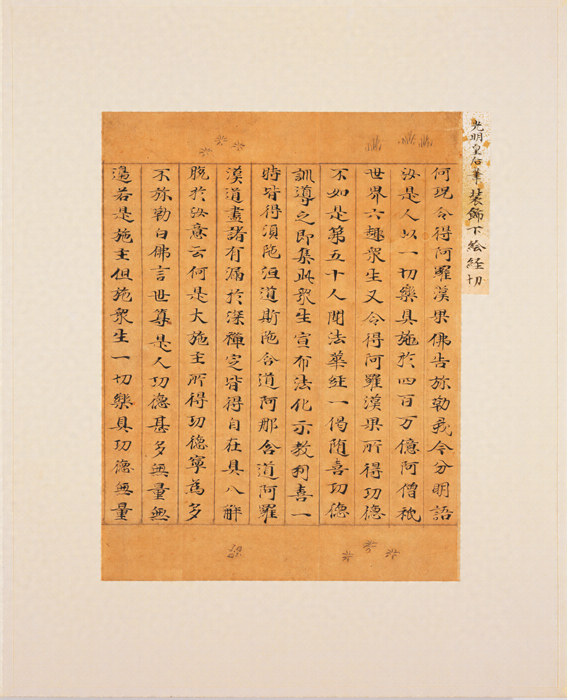 光明皇后筆 装飾下絵経切
何況令得阿羅漢果佛告弥勒我今分明語
汝是人以一切樂具施於四百万億阿僧祇
世界六趣衆生又令得阿羅漢果所得功德
不如是第五十人聞法華経一偈随喜功德
訓導之即集此衆生宣布法化示教利喜一
時皆得湏陁洹道斯陁含道阿那含道阿羅
漢道盡諸有漏於深禪定皆得自在具八解
脫於汝意云何是大施主所得功德寧為多
不弥勒白佛言世尊是人功德甚多無量無
邊若是施主但施衆生一切樂具功德無量